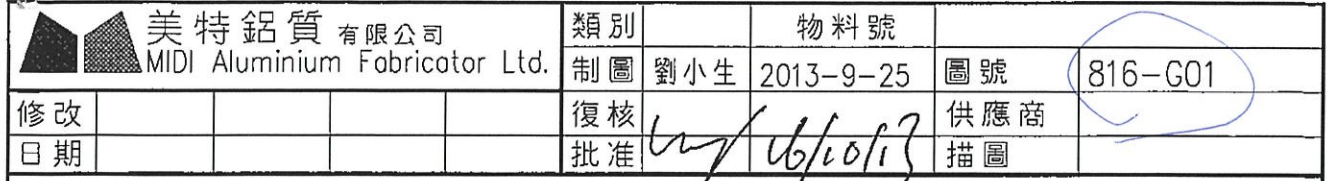 美特鋁質 有限公司
MIDI Aluminium Fabricator Ltd.
類別 物料號
制圖 劉小生 2013-9-25 圖號 816-G01
修改 復核 供應商
日期 批准 16/10/13 描圖